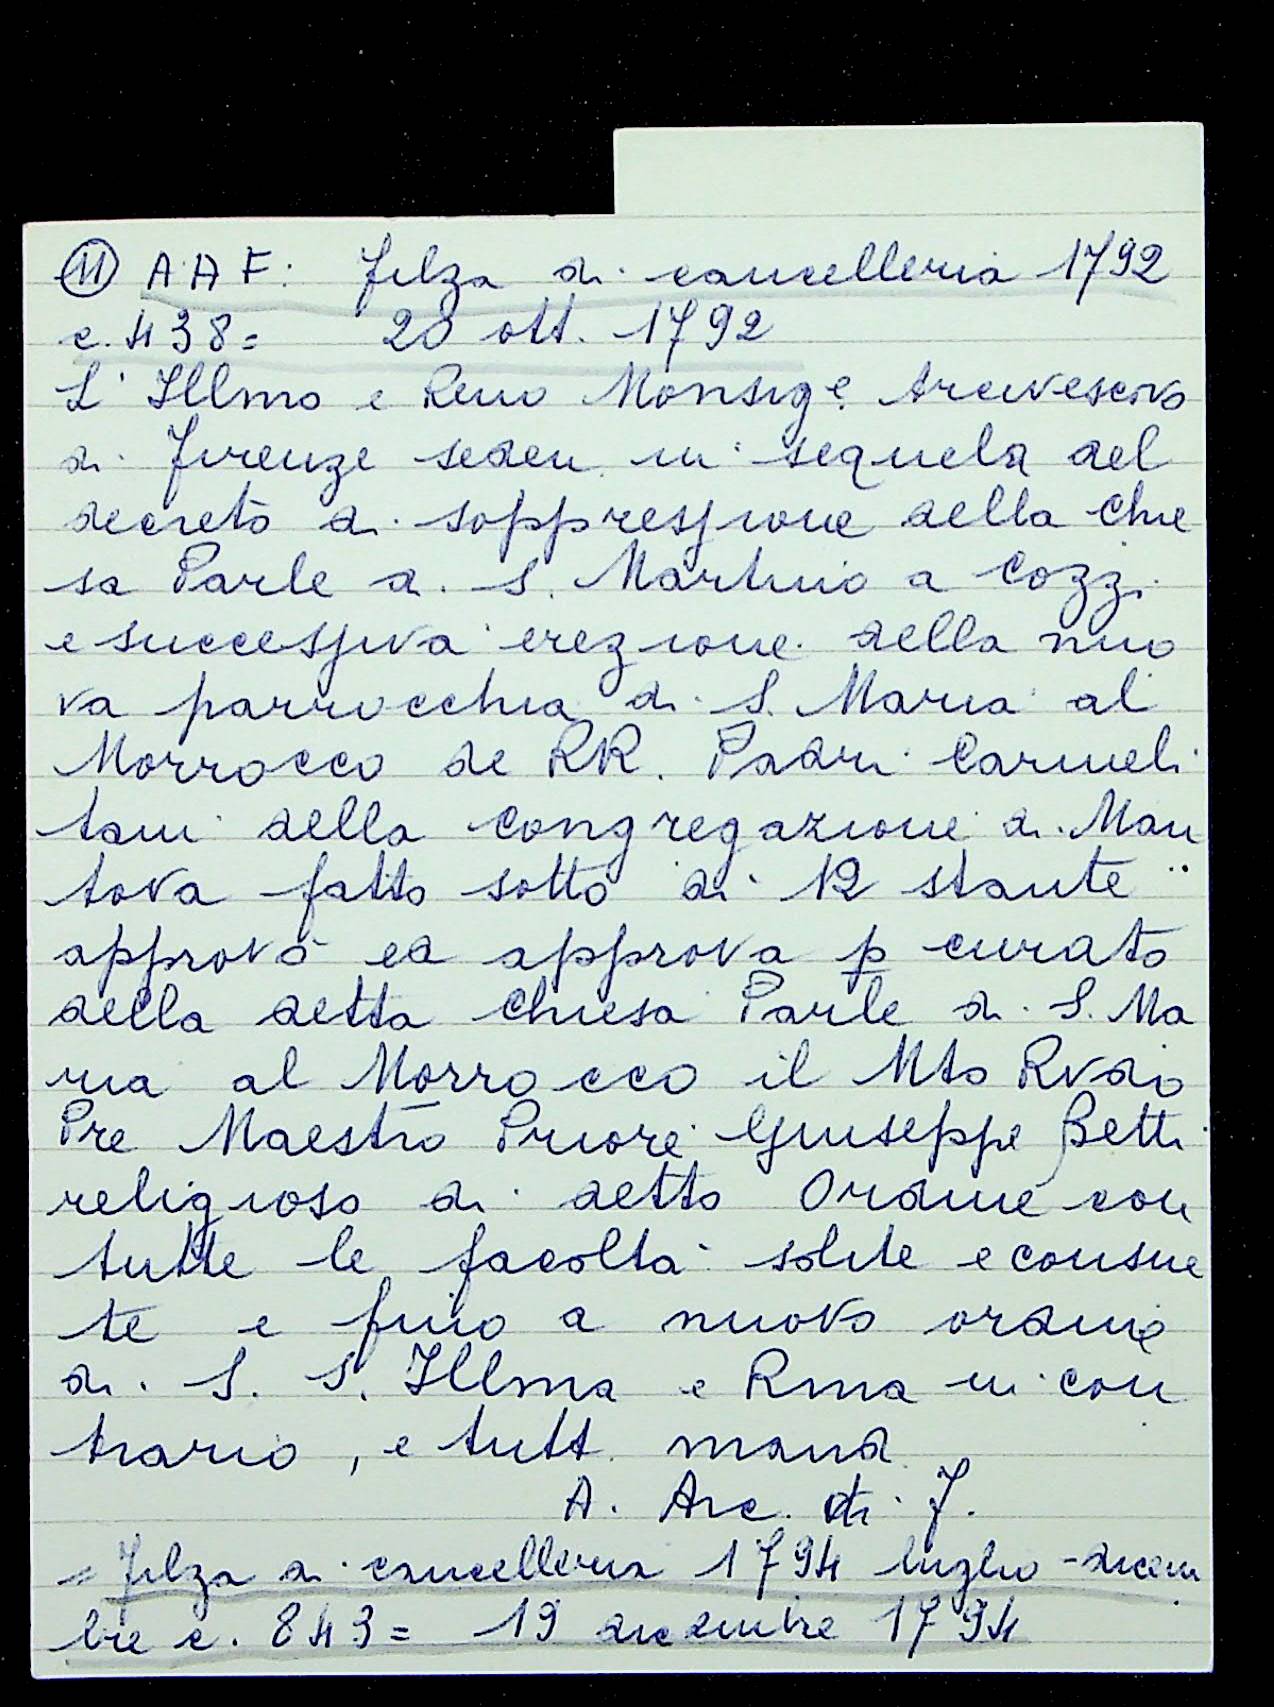 11 A A F: Filza di cancelleria 1792
c. 438= 20 ott. 1792
L' Illmo e Remo Monsig.e Arcivescovo
di Firenze seden. in sequela del
decreto di soppressione della chie
sa Parle di S. Martino a Cozzi
e successiva erezione della nuo
va parrocchia di S. Maria al
Morrocco de RR. Padri Carmeli
tani della congregazione di Man
tova fatto sotto di 12 stante
approvò ed approva p curato
della detta chiesa Parle di S. Ma
ria al Morrocco il Mto Rvdo
Pre Maestro Priore Giuseppe Betti
religioso di detto Ordine con
tutte le facoltà solite e consue
te e fino a nuovo ordine
di S. S. Illma e Rma in con
trario, e tutt. mand
A. Arc. di F.
= Filza di cancelleria 1794 luglio - dicem
bre c. 843= 19 dicembre 1794